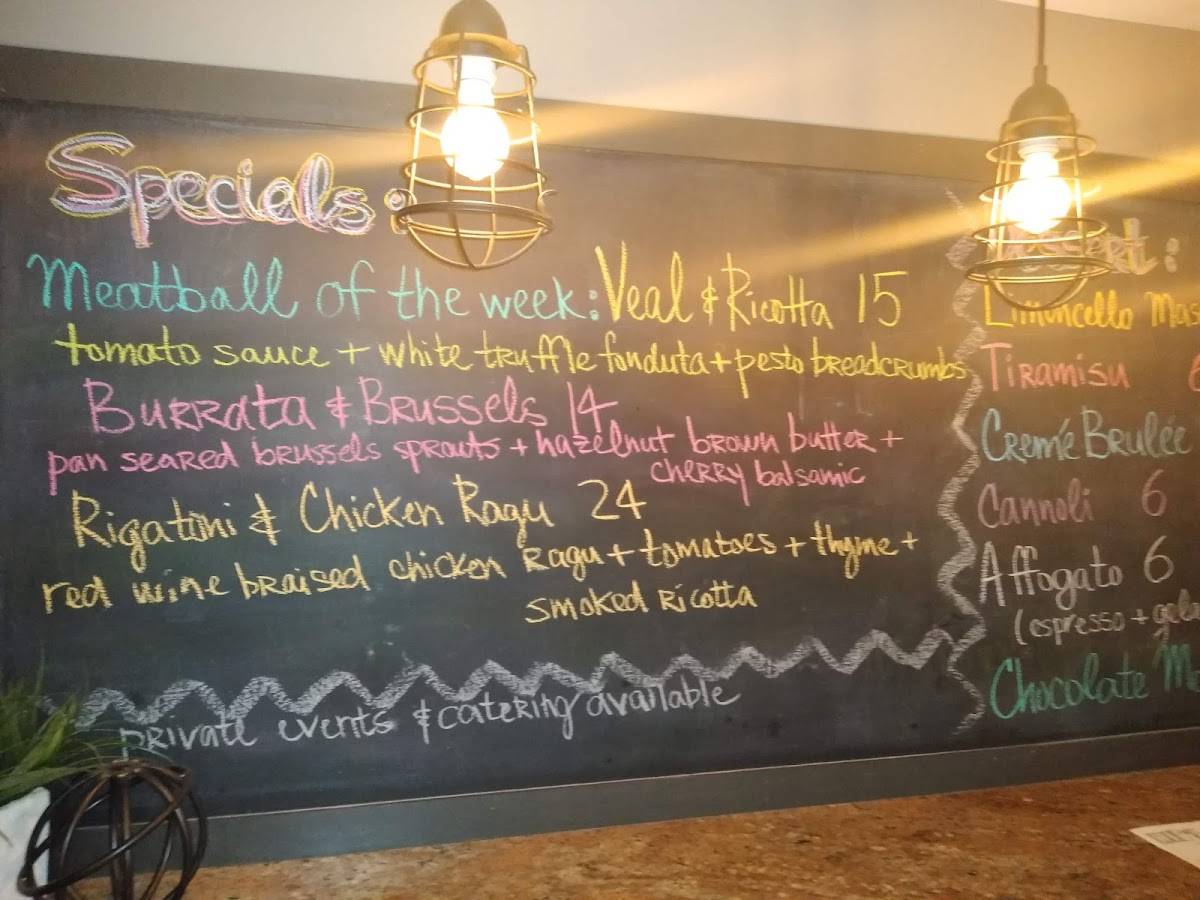 Specials:
Meatball of the week: Veal & Ricotta 15
tomato sauce + white truffle fonduta + pesto breadcrumbs
Burrata & Brussels 14
pan seared brussels sprouts + hazelnut brown butter +
cherry balsamic
Rigatoni & Chicken Ragu 24
red wine braised chicken ragu + tomatoes + thyme +
smoked ricotta
private events & catering available
Limoncello
Tiramisu
Cremé Brulée
Cannoli 6
Affogato 6
(espresso +
Chocolate